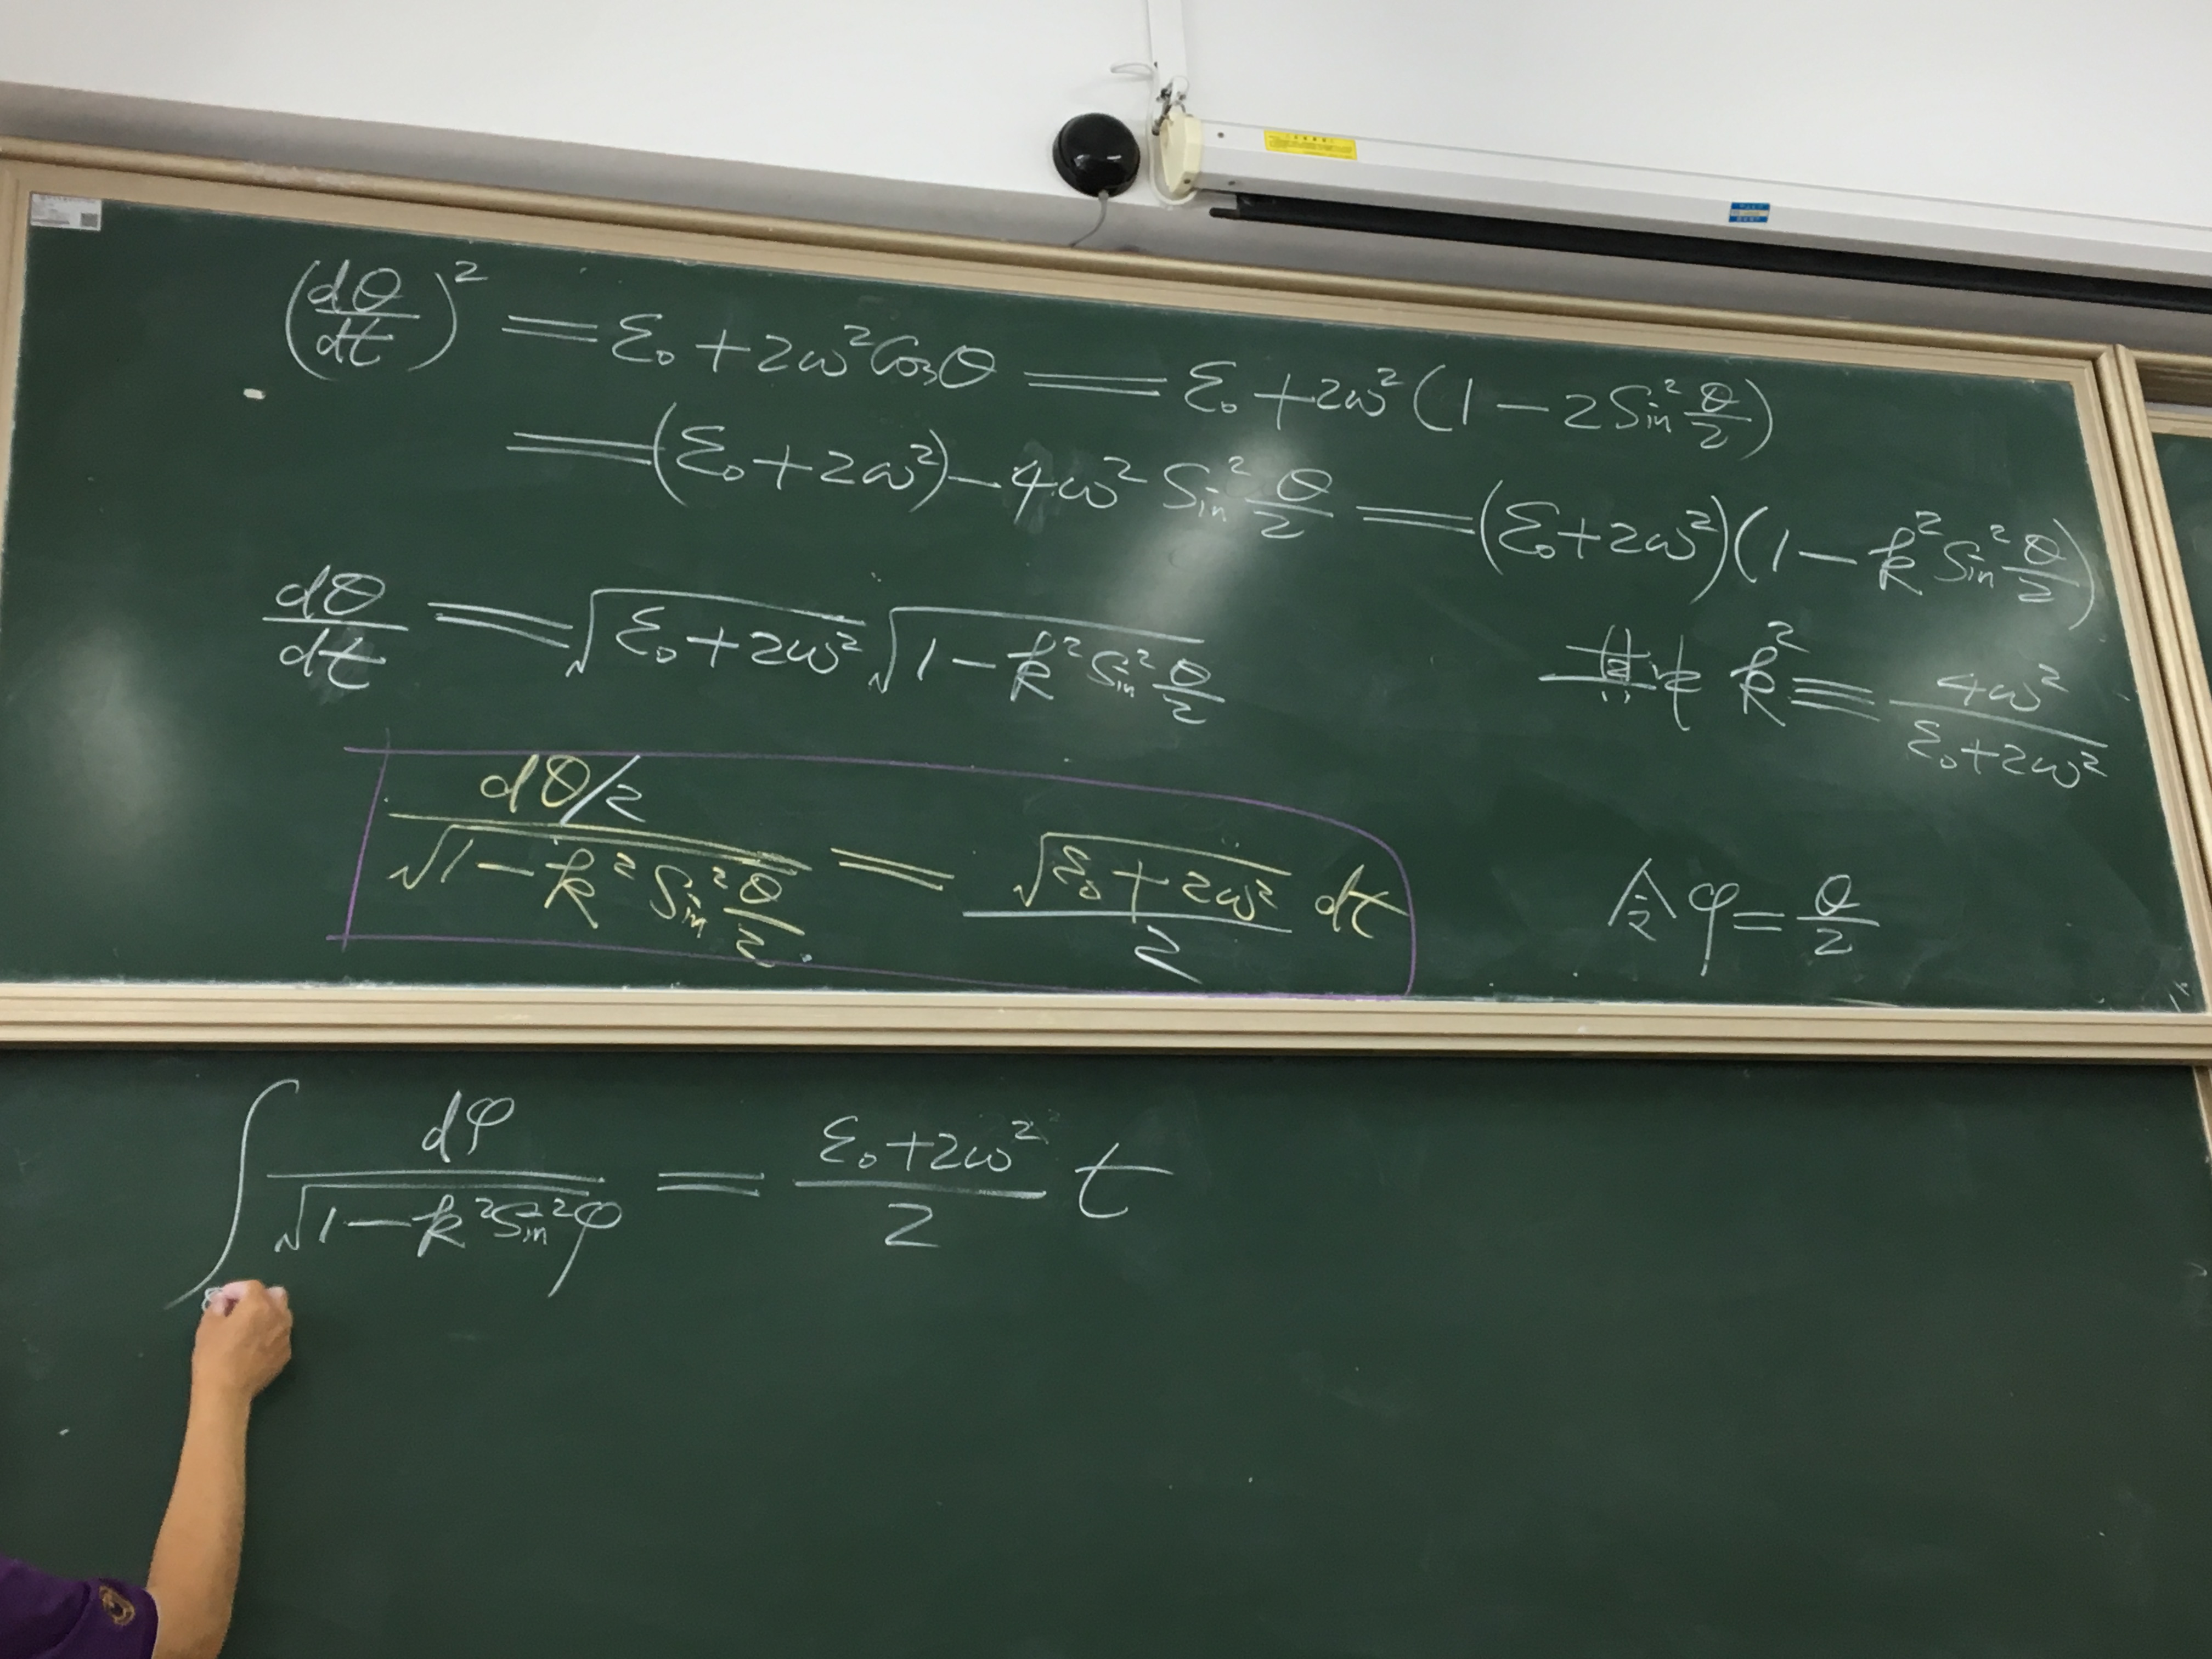 (dθ/dt)² = ε₀ + 2ω² Cosθ = ε₀ + 2ω² (1 − 2 Sin² θ/2)
= (ε₀ + 2ω²) − 4ω² Sin² θ/2 = (ε₀ + 2ω²)(1 − k² Sin² θ/2)
dθ/dt = √(ε₀ + 2ω²) √(1 − k² Sin² θ/2)
其中 k² ≡ 4ω²/(ε₀ + 2ω²)
(dθ/2)/√(1 − k² Sin² θ/2) = √(ε₀ + 2ω²)/2 dt
令 φ = θ/2
∫ dφ/√(1 − k² Sin² φ) = (ε₀ + 2ω²)/2 t